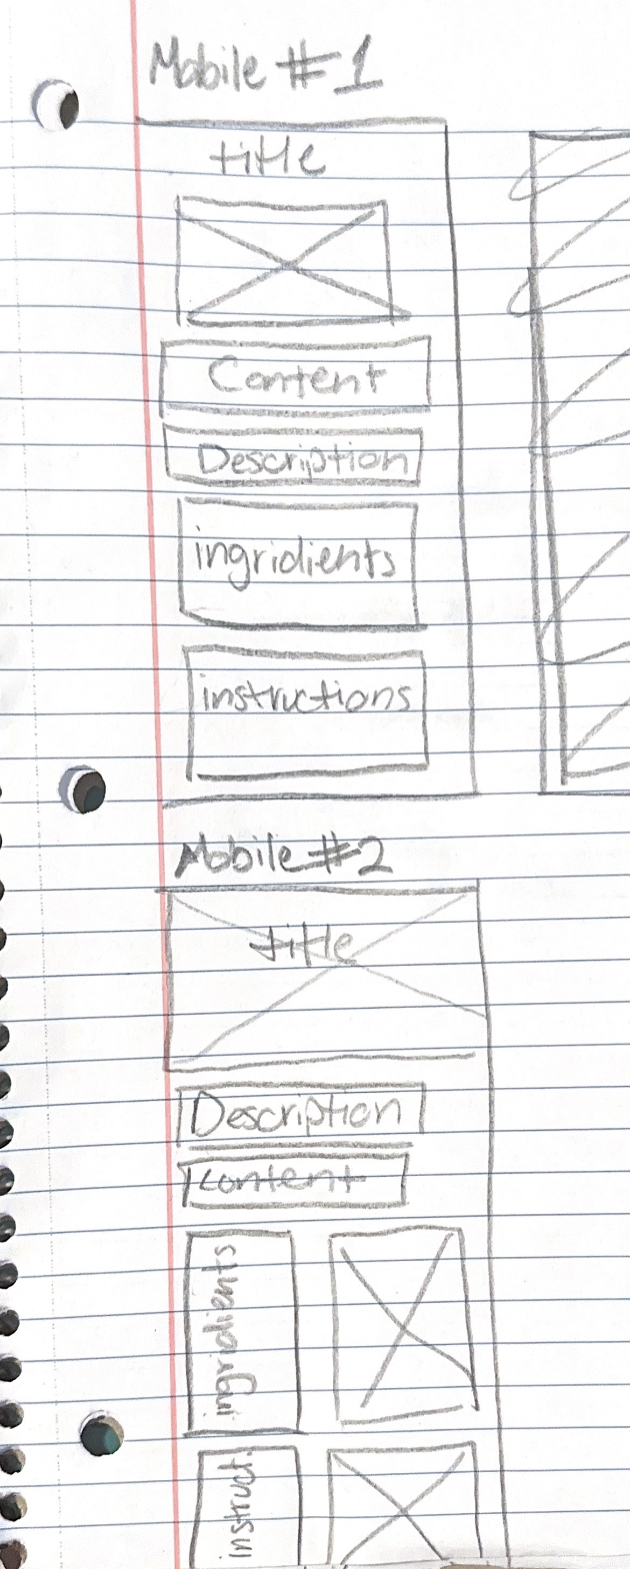 Mobile #1
title
Content
Description
ingridients
instructions
Mobile #2
title
Description
Content
ingridients
instruct.